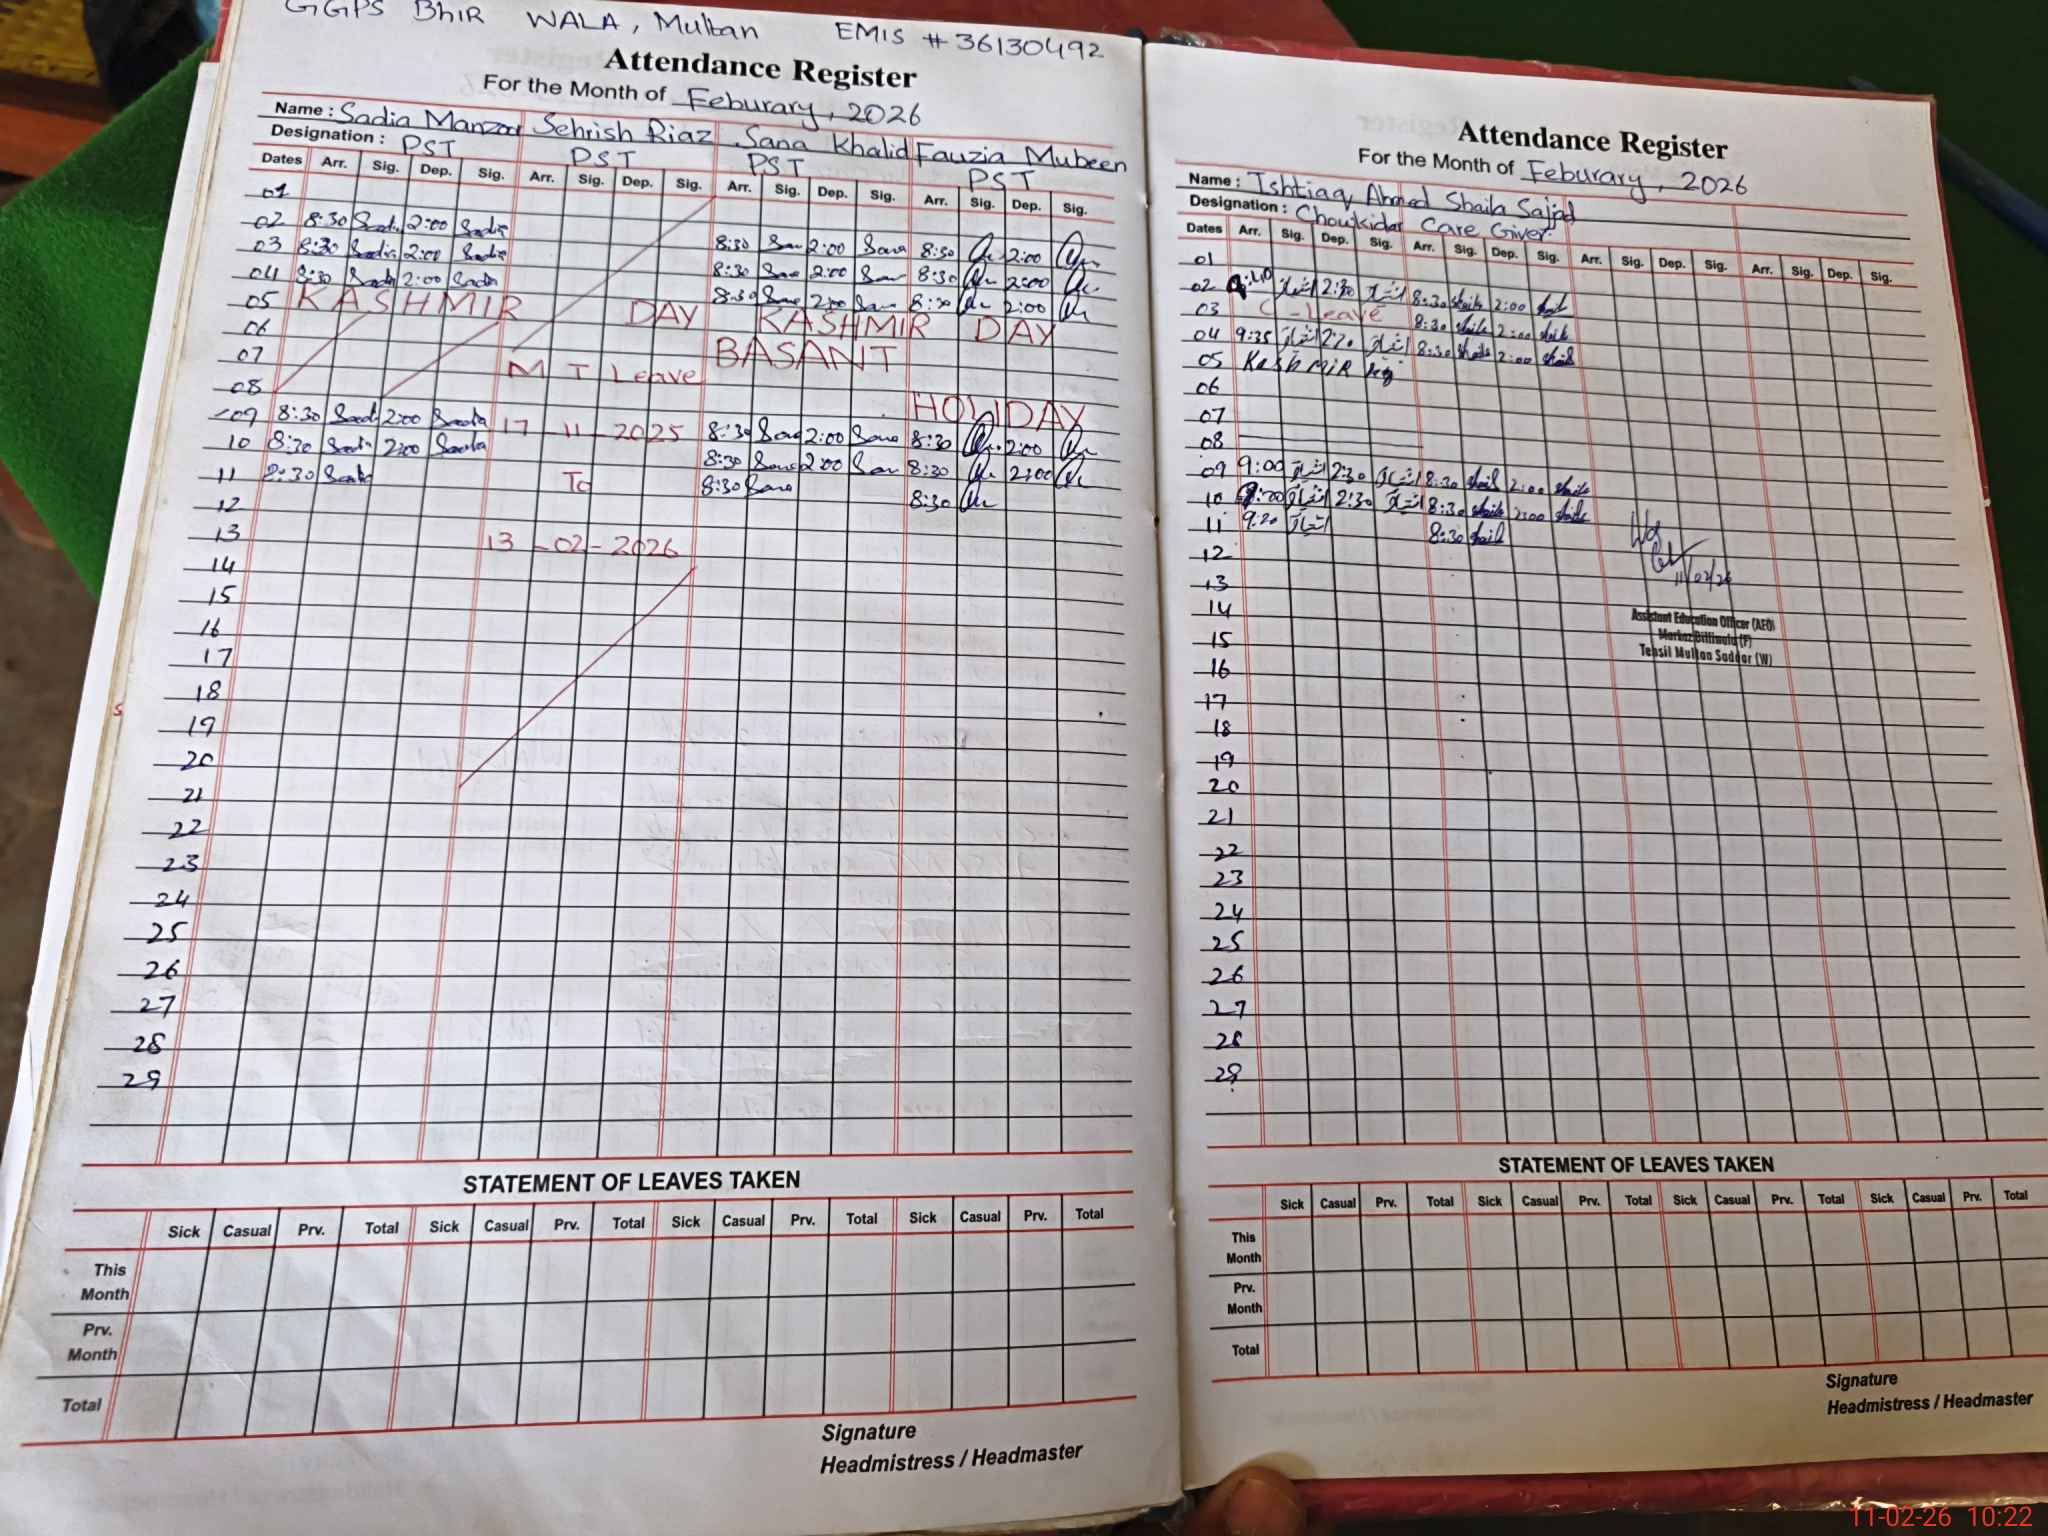 GGPS BhIR WALA, Multan EMIS # 36130492
Attendance Register
For the Month of Feburary, 2026
Name : Sadia Manzoor Sehrish Riaz Sana Khalid Fauzia Mubeen
Designation : PST PST PST PST
Dates Arr. Sig. Dep. Sig. Arr. Sig. Dep. Sig. Arr. Sig. Dep. Sig. Arr. Sig. Dep. Sig.
01
02 8:30 Sadia 2:00 Sadia 8:30 Sana 2:00 Sana 8:30 2:00
03 8:30 Sadia 2:00 Sadia 8:30 Sana 2:00 Sana 8:30 2:00
04 8:30 Sadia 2:00 Sadia 8:30 Sana 2:00 Sana 8:30 2:00
05 KASHMIR DAY KASHMIR DAY
06 BASANT
07 M T Leave
08 HOLIDAY
09 8:30 Sadia 2:00 Sadia 17-11-2025 8:30 Sana 2:00 Sana 8:30 2:00
10 8:30 Sadia 2:00 Sadia 8:30 Sana 2:00 Sana 8:30 2:00
11 8:30 Sadia To 8:30 Sana 8:30
12
13 13-02-2026
14
15
16
17
18
19
20
21
22
23
24
25
26
27
28
29
STATEMENT OF LEAVES TAKEN
Sick Casual Prv. Total Sick Casual Prv. Total Sick Casual Prv. Total Sick Casual Prv. Total
This Month
Prv. Month
Total
Signature
Headmistress / Headmaster
Attendance Register
For the Month of Feburary, 2026
Name : Ishtiaq Ahmed Shaila Sajjad
Designation : Choukidar Care Giver
Dates Arr. Sig. Dep. Sig. Arr. Sig. Dep. Sig. Arr. Sig. Dep. Sig. Arr. Sig. Dep. Sig.
01
02 اشتیاق 2:30 اشتیاق 8:30 Shaila 2:00 Shaila
03 C-Leave 8:30 Shaila 2:00 Shaila
04 9:35 اشتیاق اشتیاق 8:30 Shaila 2:00 Shaila
05 KashmiR
06
07
08
09 9:00 اشتیاق 2:30 اشتیاق 8:30 Shaila 2:00 Shaila
10 اشتیاق 2:30 اشتیاق 8:30 Shaila 2:00 Shaila
11 9:20 اشتیاق 8:30 Shaila
12
11/02/26
13
14
Assistant Education Officer (AEO)
15
Tehsil Multan Saddar (W)
16
17
18
19
20
21
22
23
24
25
26
27
28
29
STATEMENT OF LEAVES TAKEN
Sick Casual Prv. Total Sick Casual Prv. Total Sick Casual Prv. Total Sick Casual Prv. Total
This Month
Prv. Month
Total
Signature
Headmistress / Headmaster
11-02-26 10:22